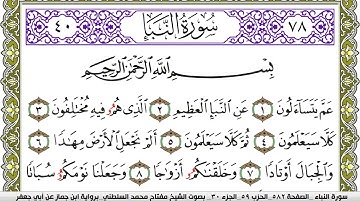 ٧٨ سُورَةُ النَّبَإِ ٤٠
بِسْمِ اللَّهِ الرَّحْمَٰنِ الرَّحِيمِ
عَمَّ يَتَسَآءَلُونَ ١ عَنِ النَّبَإِ الْعَظِيمِ ٢ الَّذِي هُمُۥ فِيهِ مُخْتَلِفُونَ ٣
كَلَّا سَيَعْلَمُونَ ٤ ثُمَّ كَلَّا سَيَعْلَمُونَ ٥ أَلَمْ نَجْعَلِ الْأَرْضَ مِهَٰدًا ٦
وَالْجِبَالَ أَوْتَادًا ٧ وَخَلَقْنَٰكُمُۥ أَزْوَٰجًا ٨ وَجَعَلْنَا نَوْمَكُمُۥ سُبَاتًا ٩
سورة النباء . الصفحة ٥٨٢ . الحزب ٥٩ . الجزء ٣٠ . بصوت الشيخ مفتاح محمد السلطني .برواية ابن جماز عن أبي جعفر